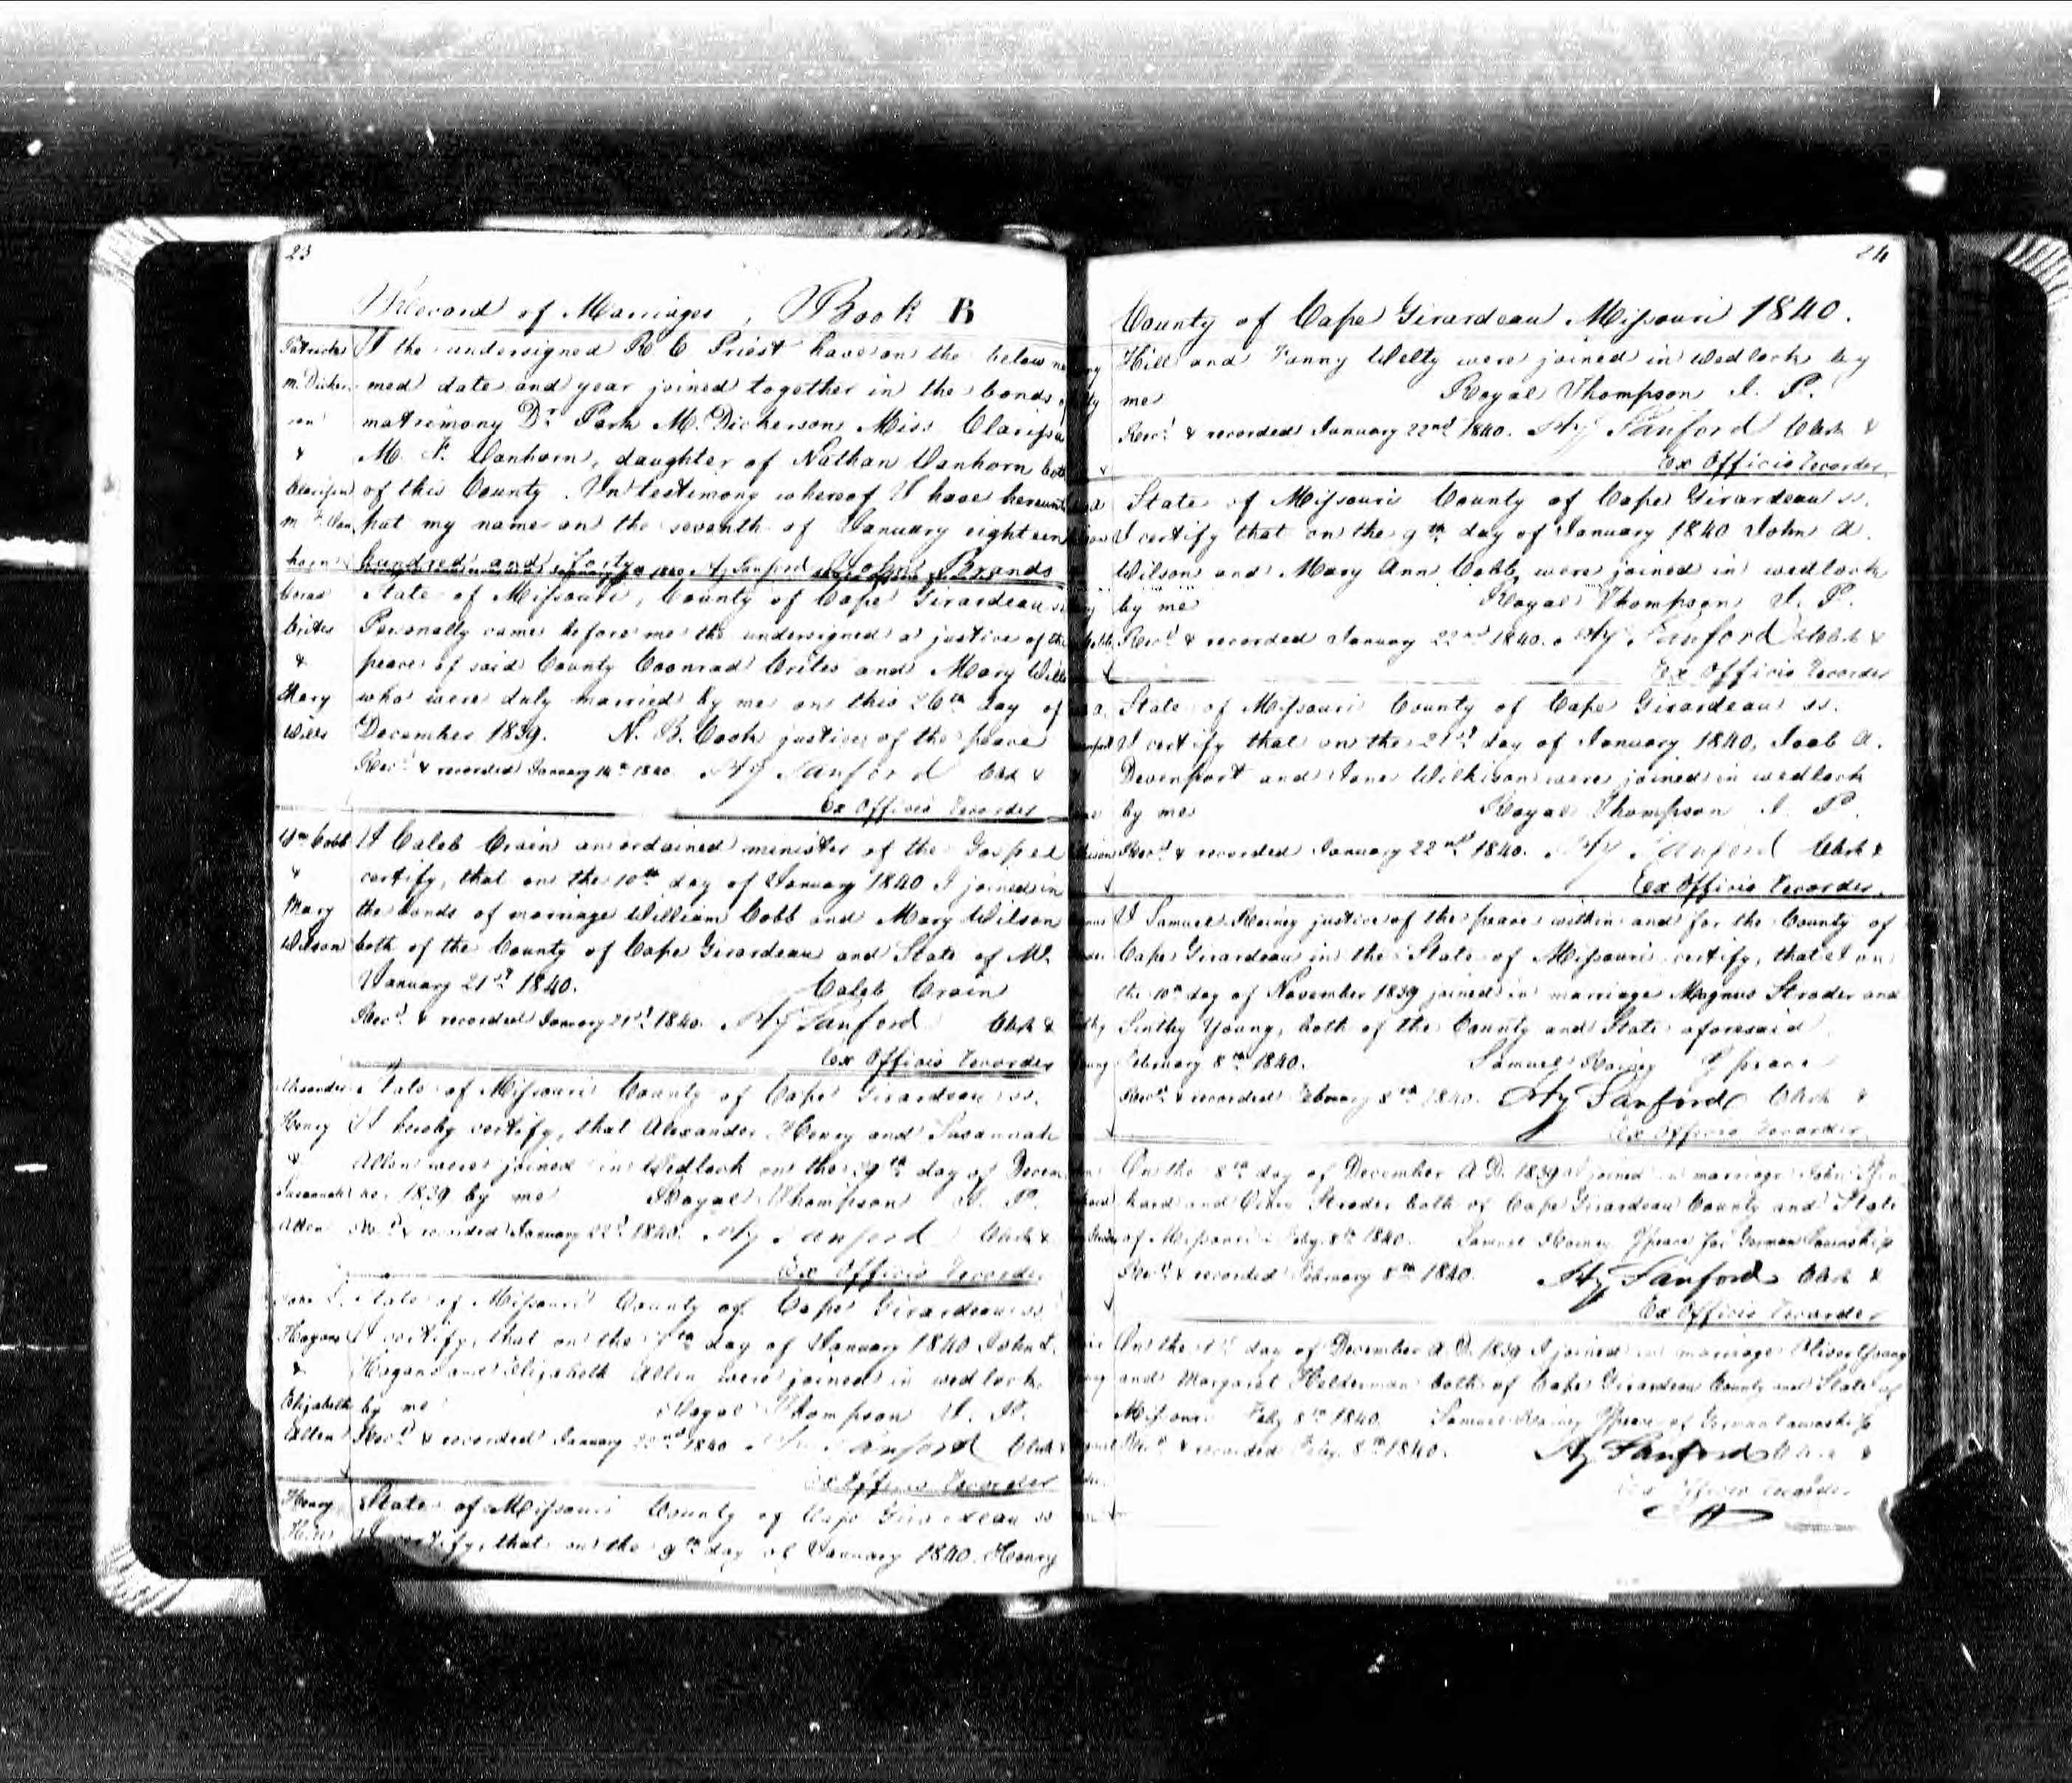 23
Record of Marriages, Book B
I the undersigned R C Priest have on the below na
med date and year joined together in the bonds of
matrimony Dr Park M. Dickerson Miss Clarissa
M. F. Vanhorn, daughter of Nathan Vanhorn both
of this County. In testimony whereof I have hereunto
put my name on the seventh of January eighteen
hundred and forty
State of Missouri, County of Cape Girardeau ss
Personally came before me the undersigned a justice of the
peace of said County Coonrad Crites and Mary Wills
who were duly married by me on this 26th day of
December 1839. N. B. Cook justice of the peace
Recd & recorded January 14th 1840. Hy Sanford Clerk &
Ex Officio Recorder
Wm Cobb
&
Mary
Wilson
I Caleb Crain an ordained minister of the Gospel
certify, that on the 10th day of January 1840 I joined in
the bonds of marriage William Cobb and Mary Wilson
both of the County of Cape Girardeau and State of Mo.
January 21st 1840. Caleb Crain
Recd & recorded January 21st 1840. Hy Sanford Clerk &
Ex Officio Recorder
Alexander
Henry
&
Susannah
Allen
State of Missouri County of Cape Girardeau ss.
I hereby certify, that Alexander Henry and Susannah
Allen were joined in Wedlock on the 19th day of Decem
ber 1839 by me Royal Thompson J. P.
Recd & recorded January 22d 1840. Hy Sanford Clerk &
Ex Officio Recorder
John L.
Hagans
&
Elizabeth
Allen
State of Missouri County of Cape Girardeau ss
I certify, that on the 7th day of January 1840 John L.
Hagans and Elizabeth Allen were joined in wedlock
by me Royal Thompson J. P.
Recd & recorded January 22nd 1840 Hy Sanford Clerk &
Ex Officio Recorder
Henry
State of Missouri County of Cape Girardeau ss
I certify, that on the 9th day of January 1840. Henry
24
County of Cape Girardeau Missouri 1840.
Hill and Fanny Welty were joined in wedlock by
me Royal Thompson J. P.
Recd & recorded January 22nd 1840. Hy Sanford Clerk &
Ex Officio Recorder
State of Missouri County of Cape Girardeau ss.
I certify that on the 9th day of January 1840 John A.
Wilson and Mary Ann Cobb, were joined in wedlock
by me Royal Thompson J. P.
Recd & recorded January 22nd 1840. Hy Sanford Clerk &
Ex Officio Recorder
State of Missouri County of Cape Girardeau ss.
I certify that on the 21st day of January 1840, Joab A.
Devenport and Jane Wilkison were joined in wedlock
by me Royal Thompson J. P.
Recd & recorded January 22nd 1840. Hy Sanford Clerk &
Ex Officio Recorder.
I Samuel Rainey justice of the peace within and for the County of
Cape Girardeau in the State of Missouri certify, that I on
the 10th day of November 1839 joined in marriage Magnus Strader and
Sinthy Young, both of the County and State aforesaid
February 8th 1840. Samuel Rainey J peace
Recd & recorded February 8th 1840. Hy Sanford Clerk &
Ex Officio Recorder
On the 8th day of December A.D. 1839 I joined in marriage John
hard and Strader both of Cape Girardeau County and State
of Missouri Feby. 8th 1840. Samuel Rainey J peace for German Township
Recd & recorded February 8th 1840. Hy Sanford Clerk &
Ex Officio Recorder
On the 1st day of December A.D. 1839 I joined in marriage Oliver Young
and Margaret Holderman both of Cape Girardeau County and State of
Missouri Feby 8th 1840. Samuel Rainey J peace of German township
Recd & recorded Feby. 8th 1840. Hy Sanford Clerk &
Ex Officio Recorder